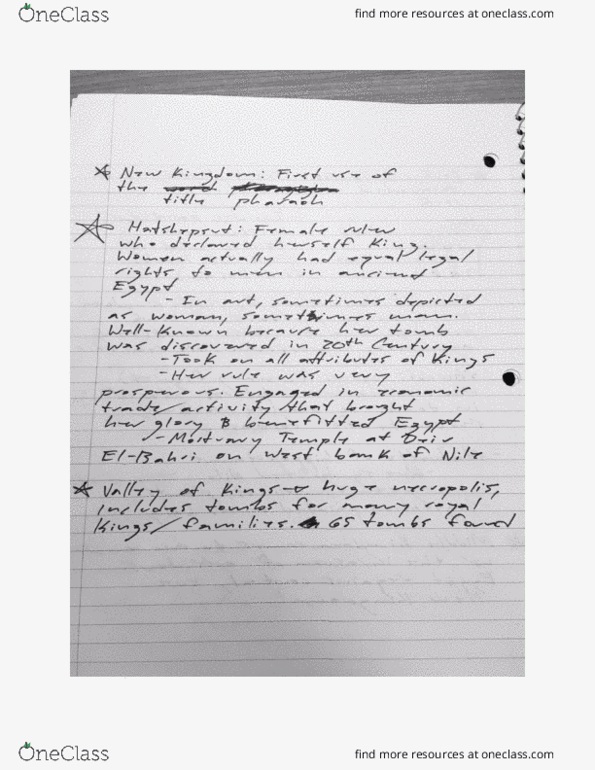 OneClass
find more resources at oneclass.com
New Kingdom: First use of
the word
title pharaoh
Hatshepsut: Female ruler
who declared herself King.
Women actually had equal legal
rights to men in ancient
Egypt
- In art, sometimes depicted
as woman, sometimes man.
Well-Known because her tomb
was discovered in 20th Century
- Took on all attributes of Kings
- Her rule was very
prosperous. Engaged in economic
trade/activity that brought
her glory & benefitted Egypt
- Mortuary Temple at Deir
El-Bahri on west bank of Nile
Valley of Kings → huge necropolis,
includes tombs for many royal
Kings/families. 65 tombs found
OneClass
find more resources at oneclass.com